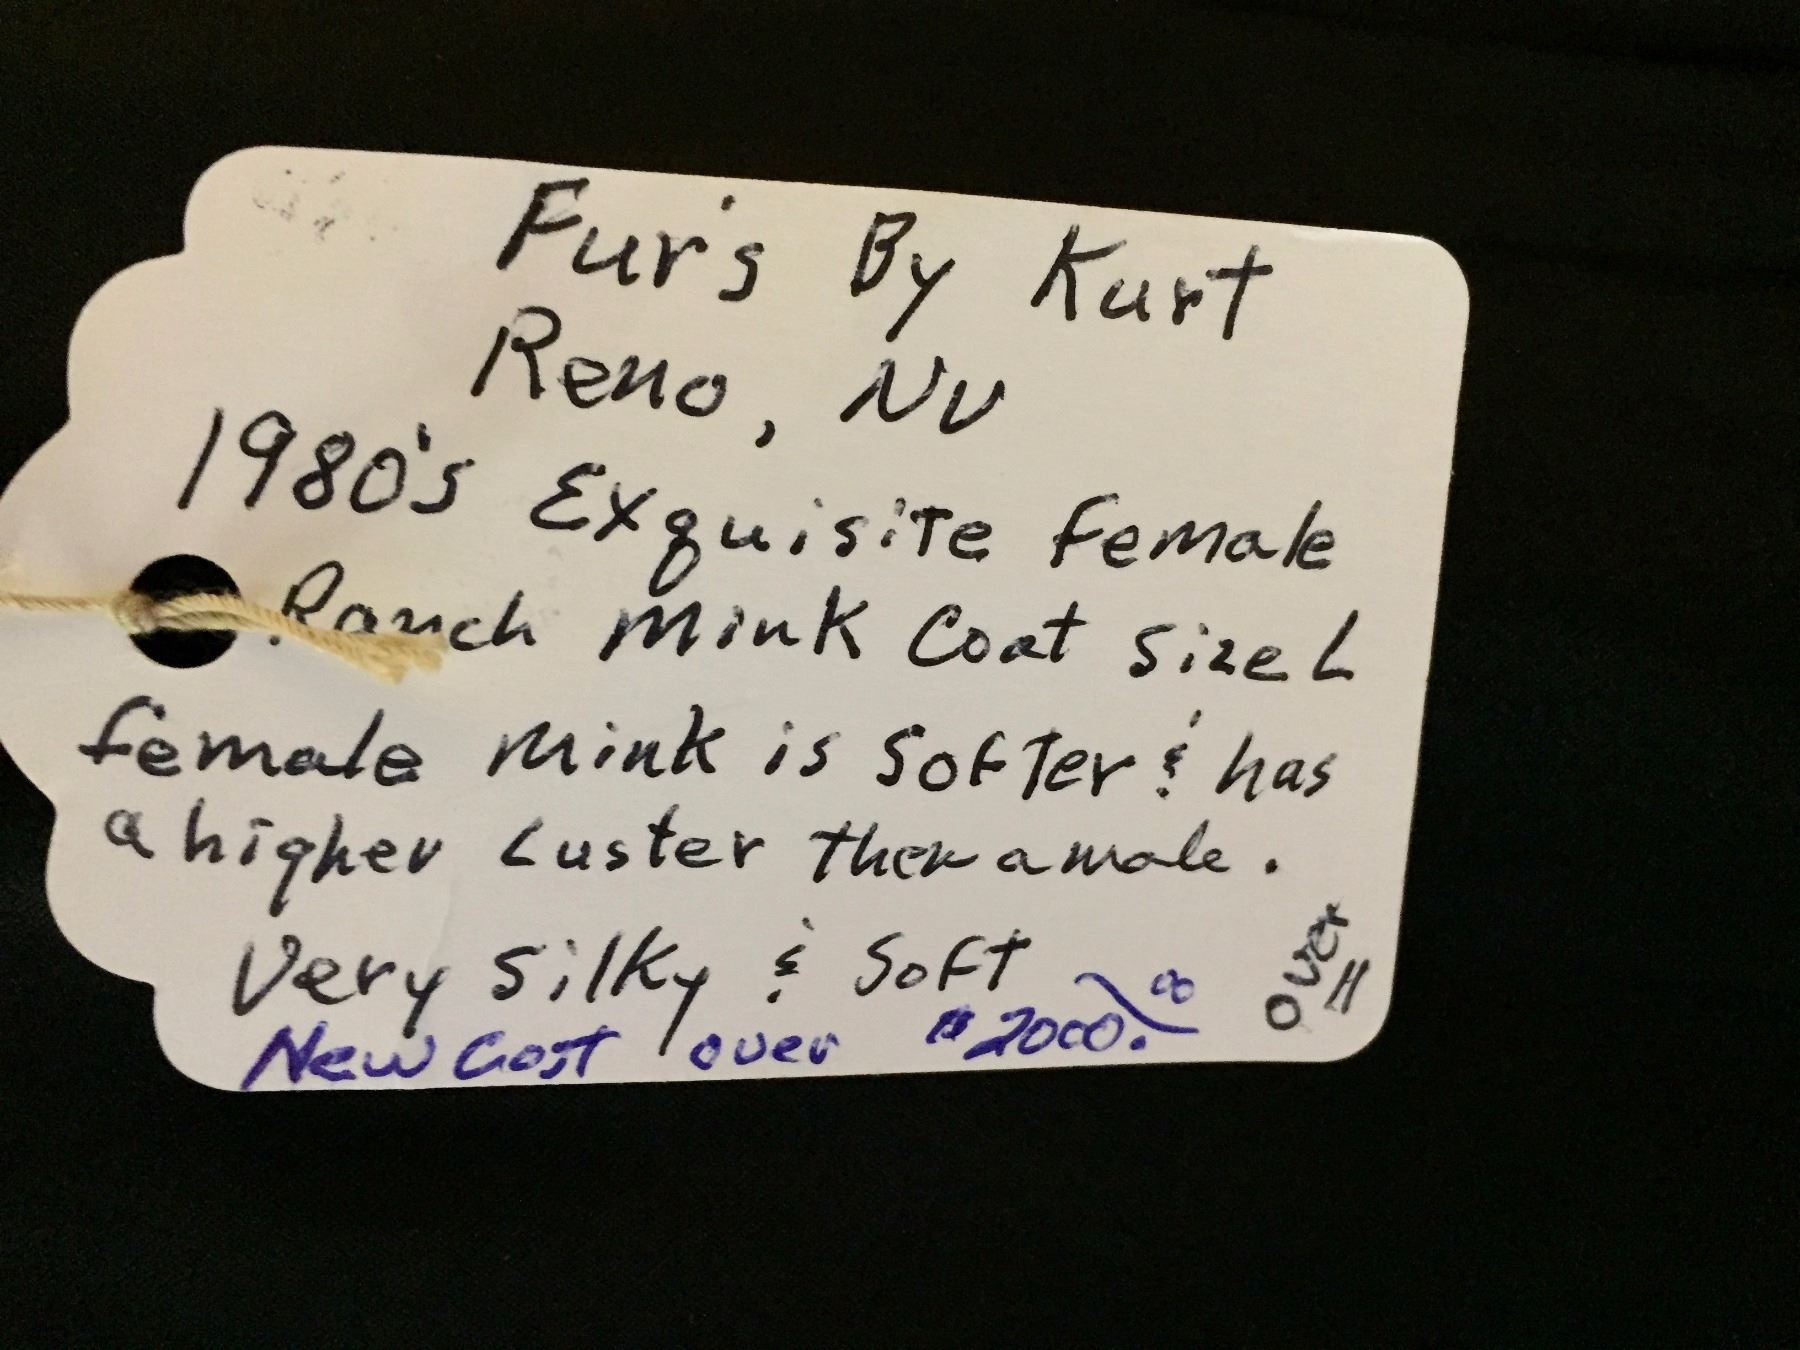 Fur's By Kurt
Reno, NV
1980's Exquisite Female
Ranch Mink Coat Size L
Female Mink is Softer & has
a higher Luster then a male.
Very Silky & Soft
New Cost over $2000.00
over